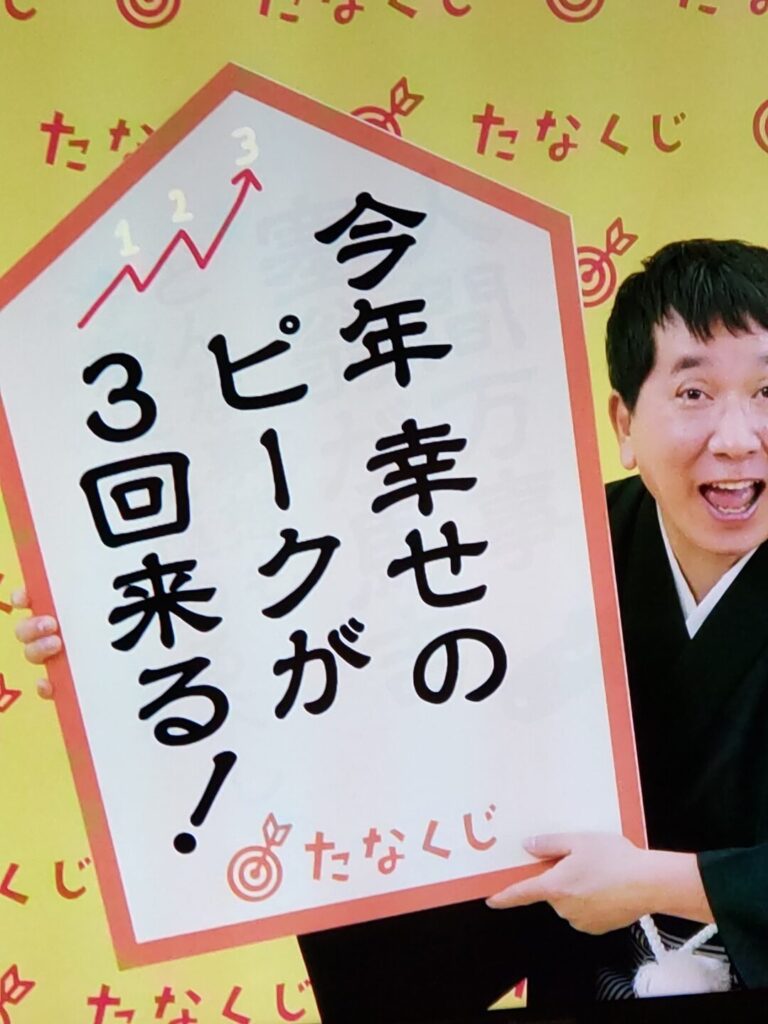 たなくじ
たなくじ
たな
たなくじ
1 2 3
今年 幸せの
ピークが
3回来る!
たなくじ
くじ
たなくじ